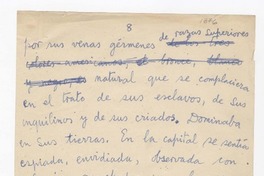 8
razas superiores
por sus venas gérmenes de
natural que se complaciera
en el trato de sus esclavos, de sus
inquilinos y de sus criados. Dominaba
en sus tierras. En la capital se sentía
espiada, envidiada, observada con